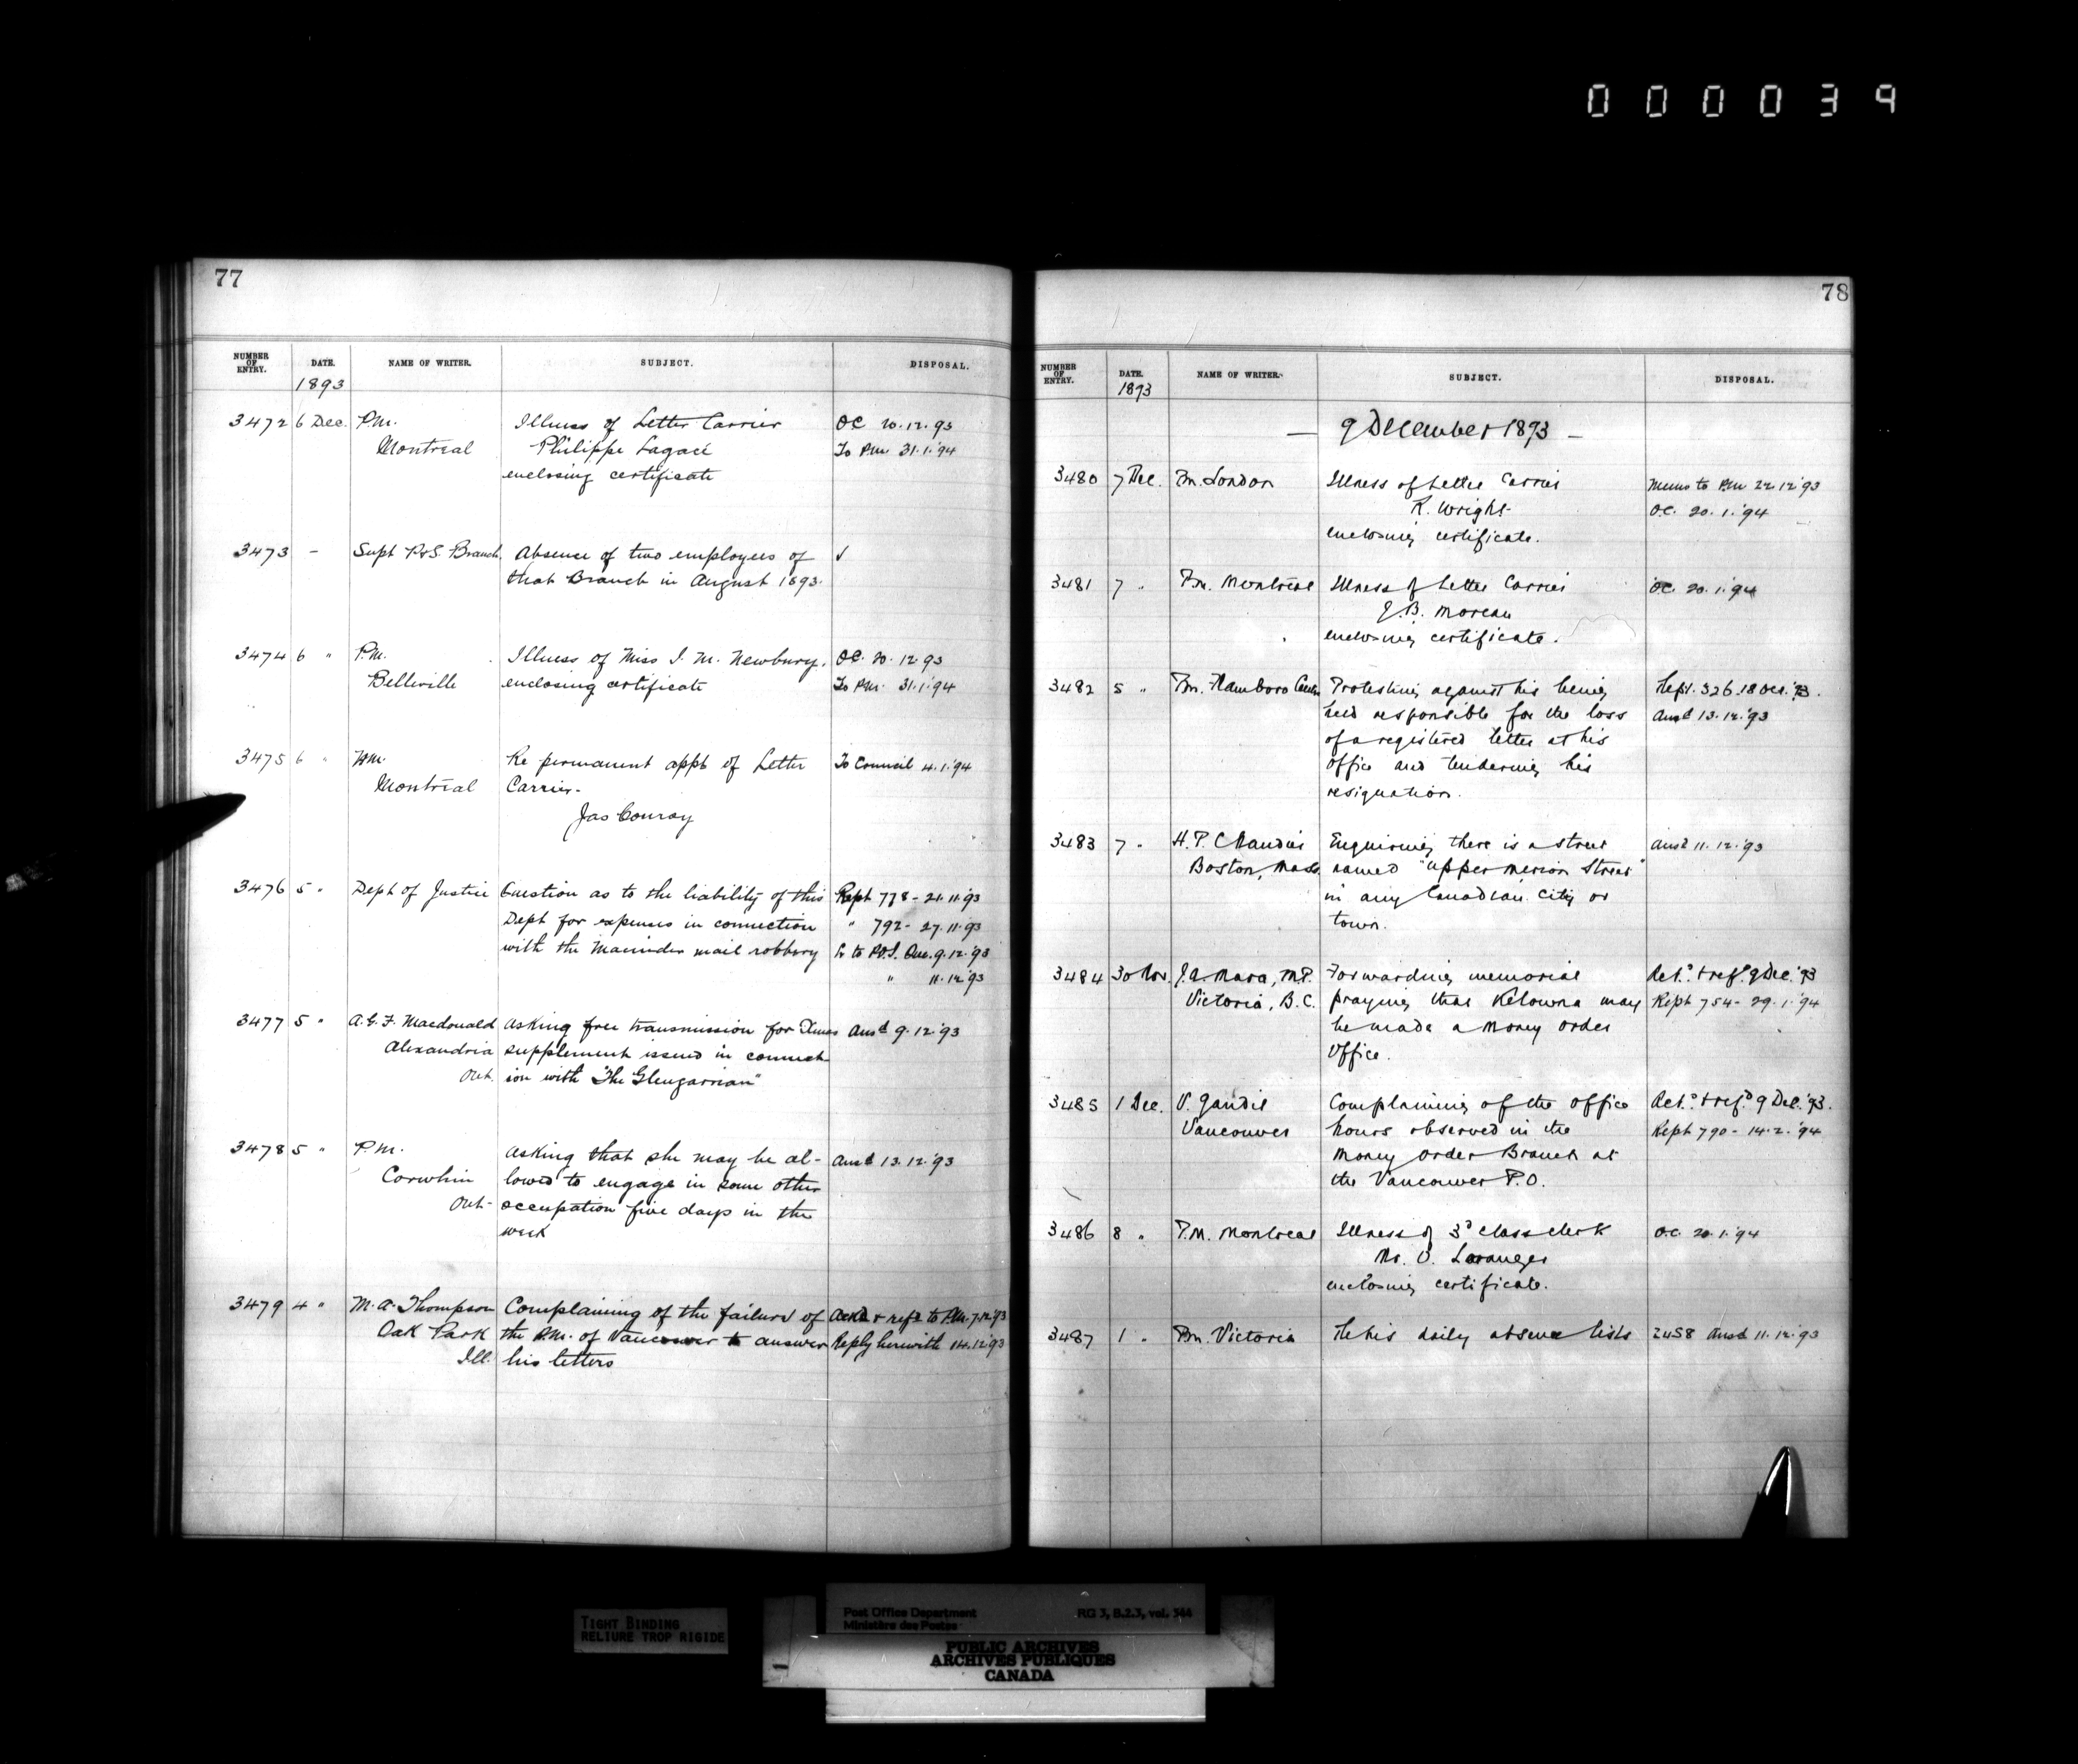 000039
77
NUMBER OF ENTRY. DATE. NAME OF WRITER. SUBJECT. DISPOSAL.
1893
3472 6 Dec. P.M. Illness of Letter Carrier OC 20.12.93
Montreal Philippe Lagacé To P.M. 31.1.'94
enclosing certificate
3473 - Supt P.&S. Branch. Absence of two employees of √
that Branch in August 1893.
3474 6 " P.M. Illness of Miss I. M. Newbury. OC. 20.12.93
Belleville enclosing certificate To P.M. 31.1.'94
3475 6 " P.M. Re permanent appt of Letter To Council 4.1.'94
Montreal Carrier-
Jas Conroy
3476 5 " Dept of Justice Question as to the liability of this Rept 778 - 21.11.93
Dept for expenses in connection " 792 - 27.11.93
with the mail robbery to P.O.I. Que. 9.12.'93
" 11.12.'93
3477 5 " A. G. F. Macdonald Asking free transmission for Xmas Ansd 9.12.'93
Alexandria supplement issued in connect-
Ont. ion with "The Glengarrian"
3478 5 " P.M. Asking that she may be al- Ansd 13.12.'93
Corwhin lowed to engage in some other
Ont- occupation five days in the
week
3479 4 " M. A. Thompson Complaining of the failure of Ackd & refd to P.M. 7.12.'93
Oak Park the P.M. of Vancouver to answer Reply herewith 14.12.'93
Ill. his letters
78
NUMBER OF ENTRY. DATE. NAME OF WRITER. SUBJECT. DISPOSAL.
1893
— 9 December 1893 —
3480 7 Dec. P.M. London Illness of Letter Carrier Memo to P.M. 22.12.'93
R. Wright O.C. 20.1.'94
enclosing certificate.
3481 7 " P.M. Montreal Illness of Letter Carrier OC. 20.1.'94
J.B. Moreau
enclosing certificate.
3482 5 " P.M. Flamboro Centre Protesting against his being Rept. 326.18 Dec.'93.
held responsible for the loss Ansd 13.12.'93
of a registered letter at his
office and tendering his
resignation.
3483 7 " H.P. Enquiring there is a street Ansd 11.12.'93
Boston, Mass. named "Upper Merion Street"
in any Canadian City or
town.
3484 30 Nov. J.A. Mara, M.P. Forwarding memorial Ret.d & ref.d 9 Dec.'93
Victoria, B.C. praying that Kelowna may Rept 754 - 29.1.'94
be made a Money Order
Office.
3485 1 Dec. V. Complaining of the office Ret.d & ref.d 9 Dec.'93.
Vancouver hours observed in the Rept 790 - 14.2.'94
Money Order Branch at
the Vancouver P.O.
3486 8 " P.M. Montreal Illness of 3d Class Clerk O.C. 20.1.'94
Mr. O. Loranger
enclosing certificate.
3487 1 " P.M. Victoria Re his daily absence lists 2458 Ansd 11.12.'93
TIGHT BINDING
RELIURE TROP RIGIDE
Post Office Department RG 3, B.2.3, vol. 344
Ministère des Postes
PUBLIC ARCHIVES
ARCHIVES PUBLIQUES
CANADA